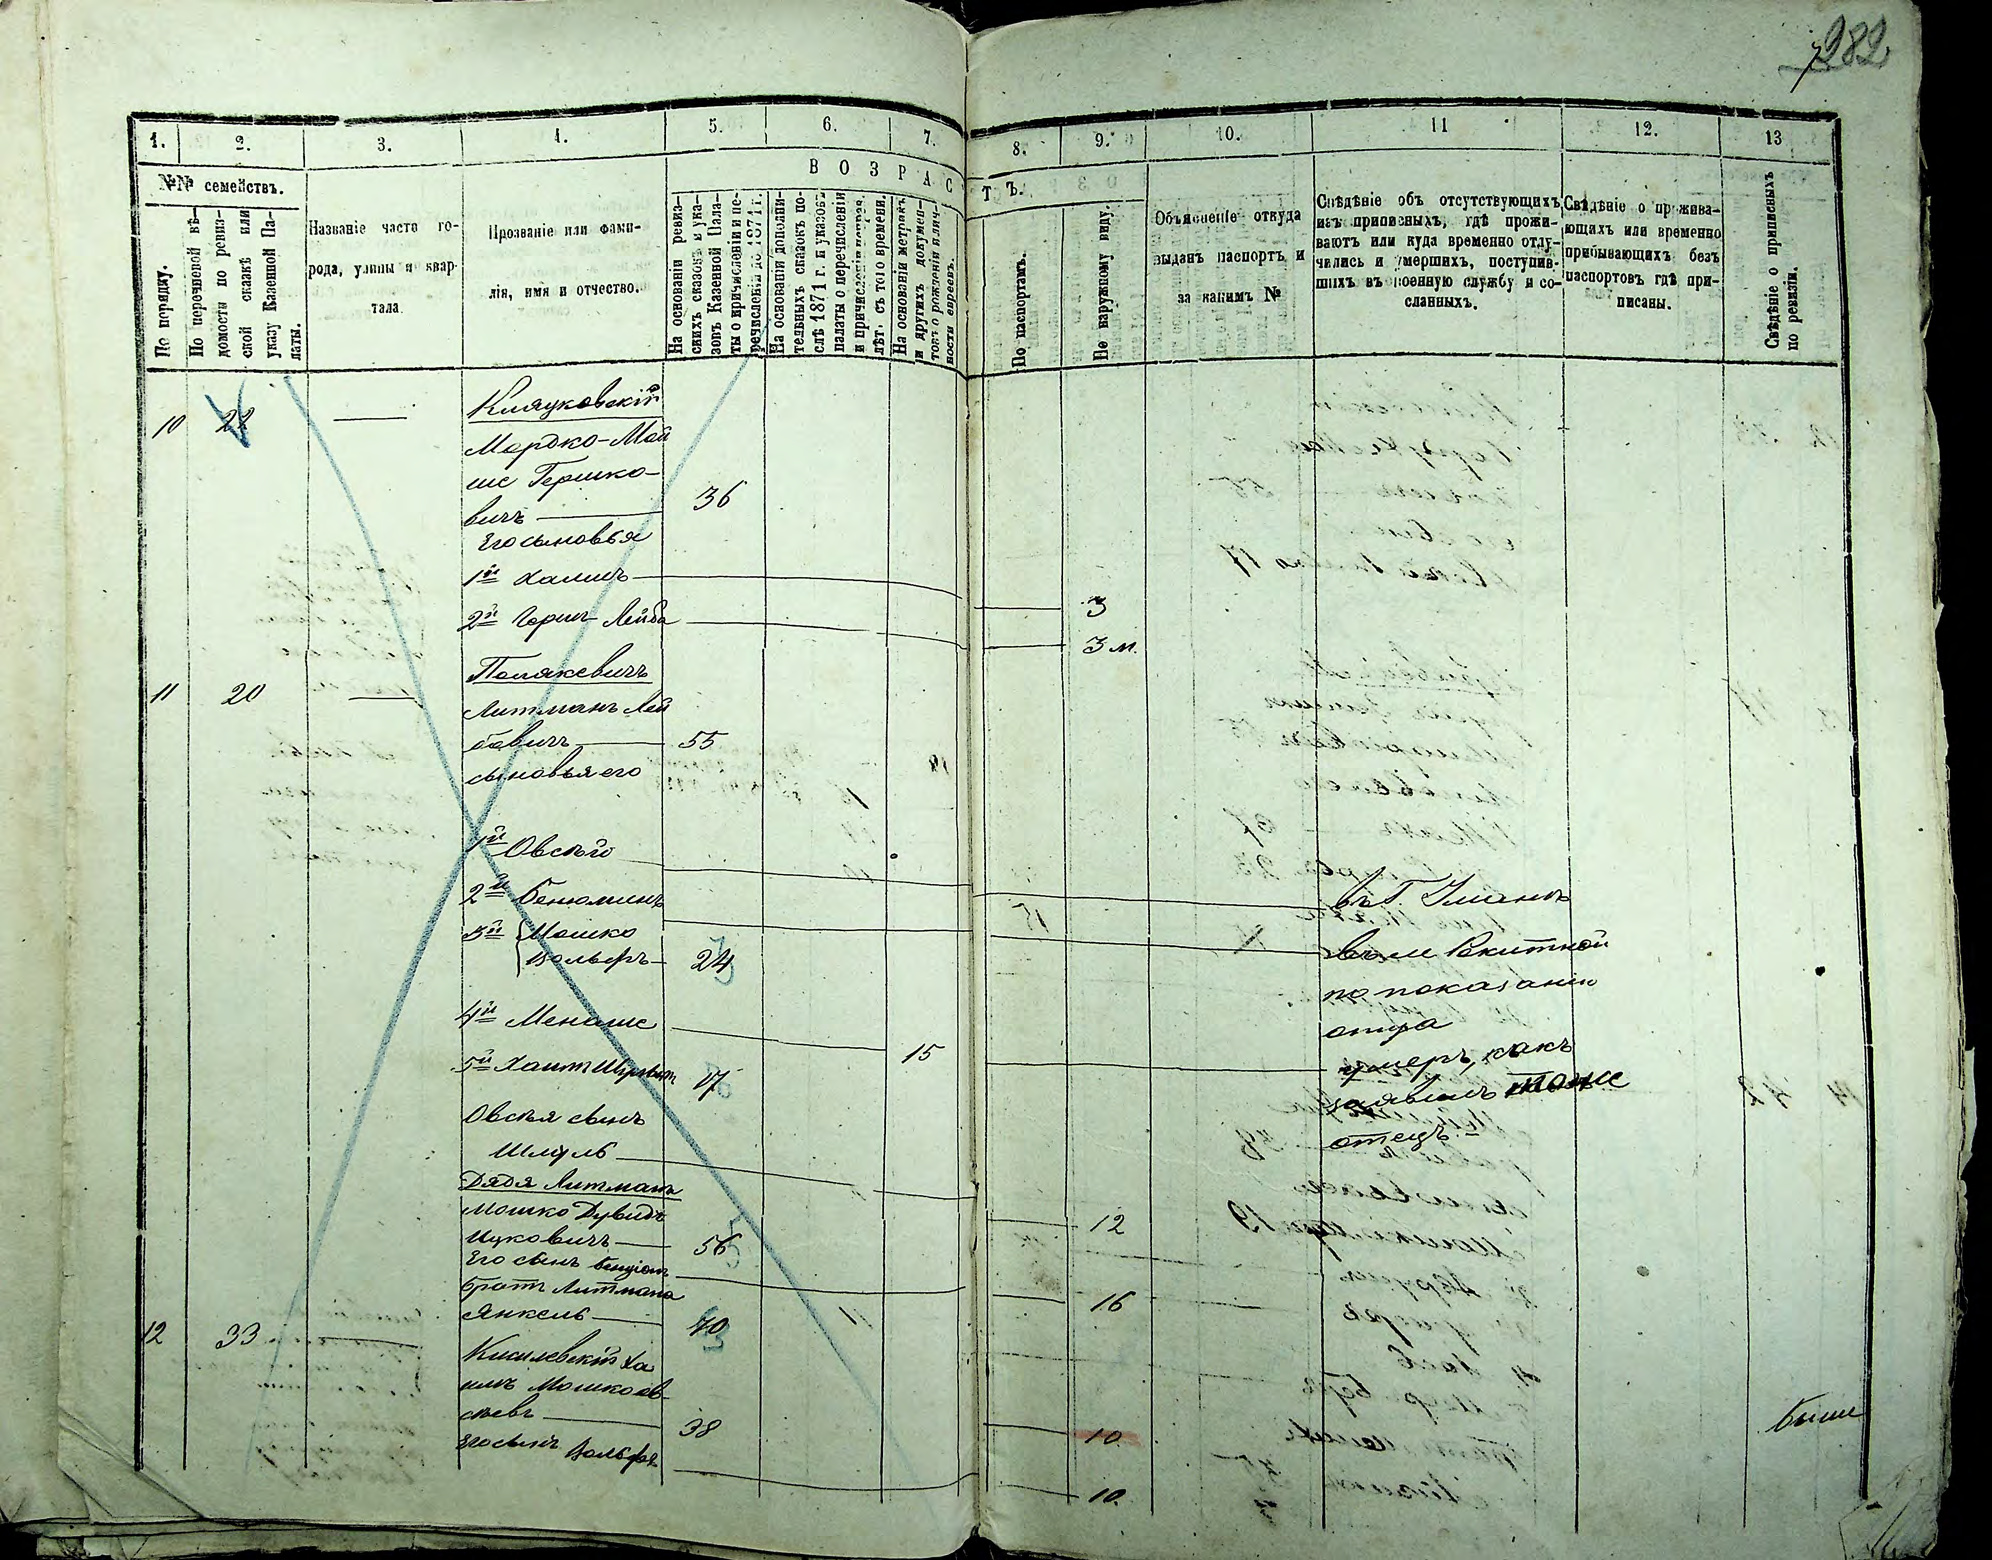 282
1.
2.
3.
4.
5.
6.
7.
8.
9.
10.
11
12.
13
№№ семействъ.
ВОЗРАС
ТЪ.
По порядку.
По перечневой вѣ-
домости по ревиз-
ской сказкѣ или
указу Казенной Па-
латы.
Названіе части го-
рода, улицы и квар-
тала.
Прозваніе или фами-
лія, имя и отчество.
На основаніи ревиз-
скихъ сказокъ и ука-
зовъ Казенной Пала-
ты о причисленіи и пе-
речисленіи до 1871 г.
На основаніи дополни-
тельныхъ сказокъ по-
слѣ 1871 г. и указовъ
палаты о перечисленіи
и причисленіи
лѣт. съ того времени.
На основаніи метрикъ
и другихъ докумен-
товъ о рожденіи
ности евреевъ.
По паспортамъ.
По наружному виду.
Объясненіе откуда
выданъ паспортъ и
за какимъ №
Свѣдѣніе объ отсутствующихъ
изъ приписныхъ, гдѣ прожи-
ваютъ или куда временно отлу-
чились и умершихъ, поступив-
шихъ въ военную службу и со-
сланныхъ.
Свѣдѣніе о прожива-
ющихъ или временно
прибывающихъ безъ
паспортовъ гдѣ при-
писаны.
Свѣдѣніе о приписныхъ
по ревизіи.
10 22 Кляцковскій
Мордко-Мой
ше Гершко-
вичъ 36
Его сыновья
1й Хаимъ 3
2й Герш-Лейба 3 м.
11 20 Полякевичъ
Литманъ Лей
бовичъ 55
сыновья его
1й Овсѣй въ г. Умани
2й Бенюминъ въ м Ракитной
по показанію
отца
3й Мошко
Вольфъ 24
4й Менаше 15
5й Хаим 17 умеръ, какъ
заявилъ тоже
отецъ
Овсѣя сынъ
Шмуль 12
Дядя Литмана
Мошко Дувидъ
Ицковичъ 56
Его сынъ Бенціонъ 16
братъ Литмана
Янкель 40 10
12 33 Кисилевскій Ха
имъ Мошково
сѣевъ 38
Его сынъ Вольфъ 10